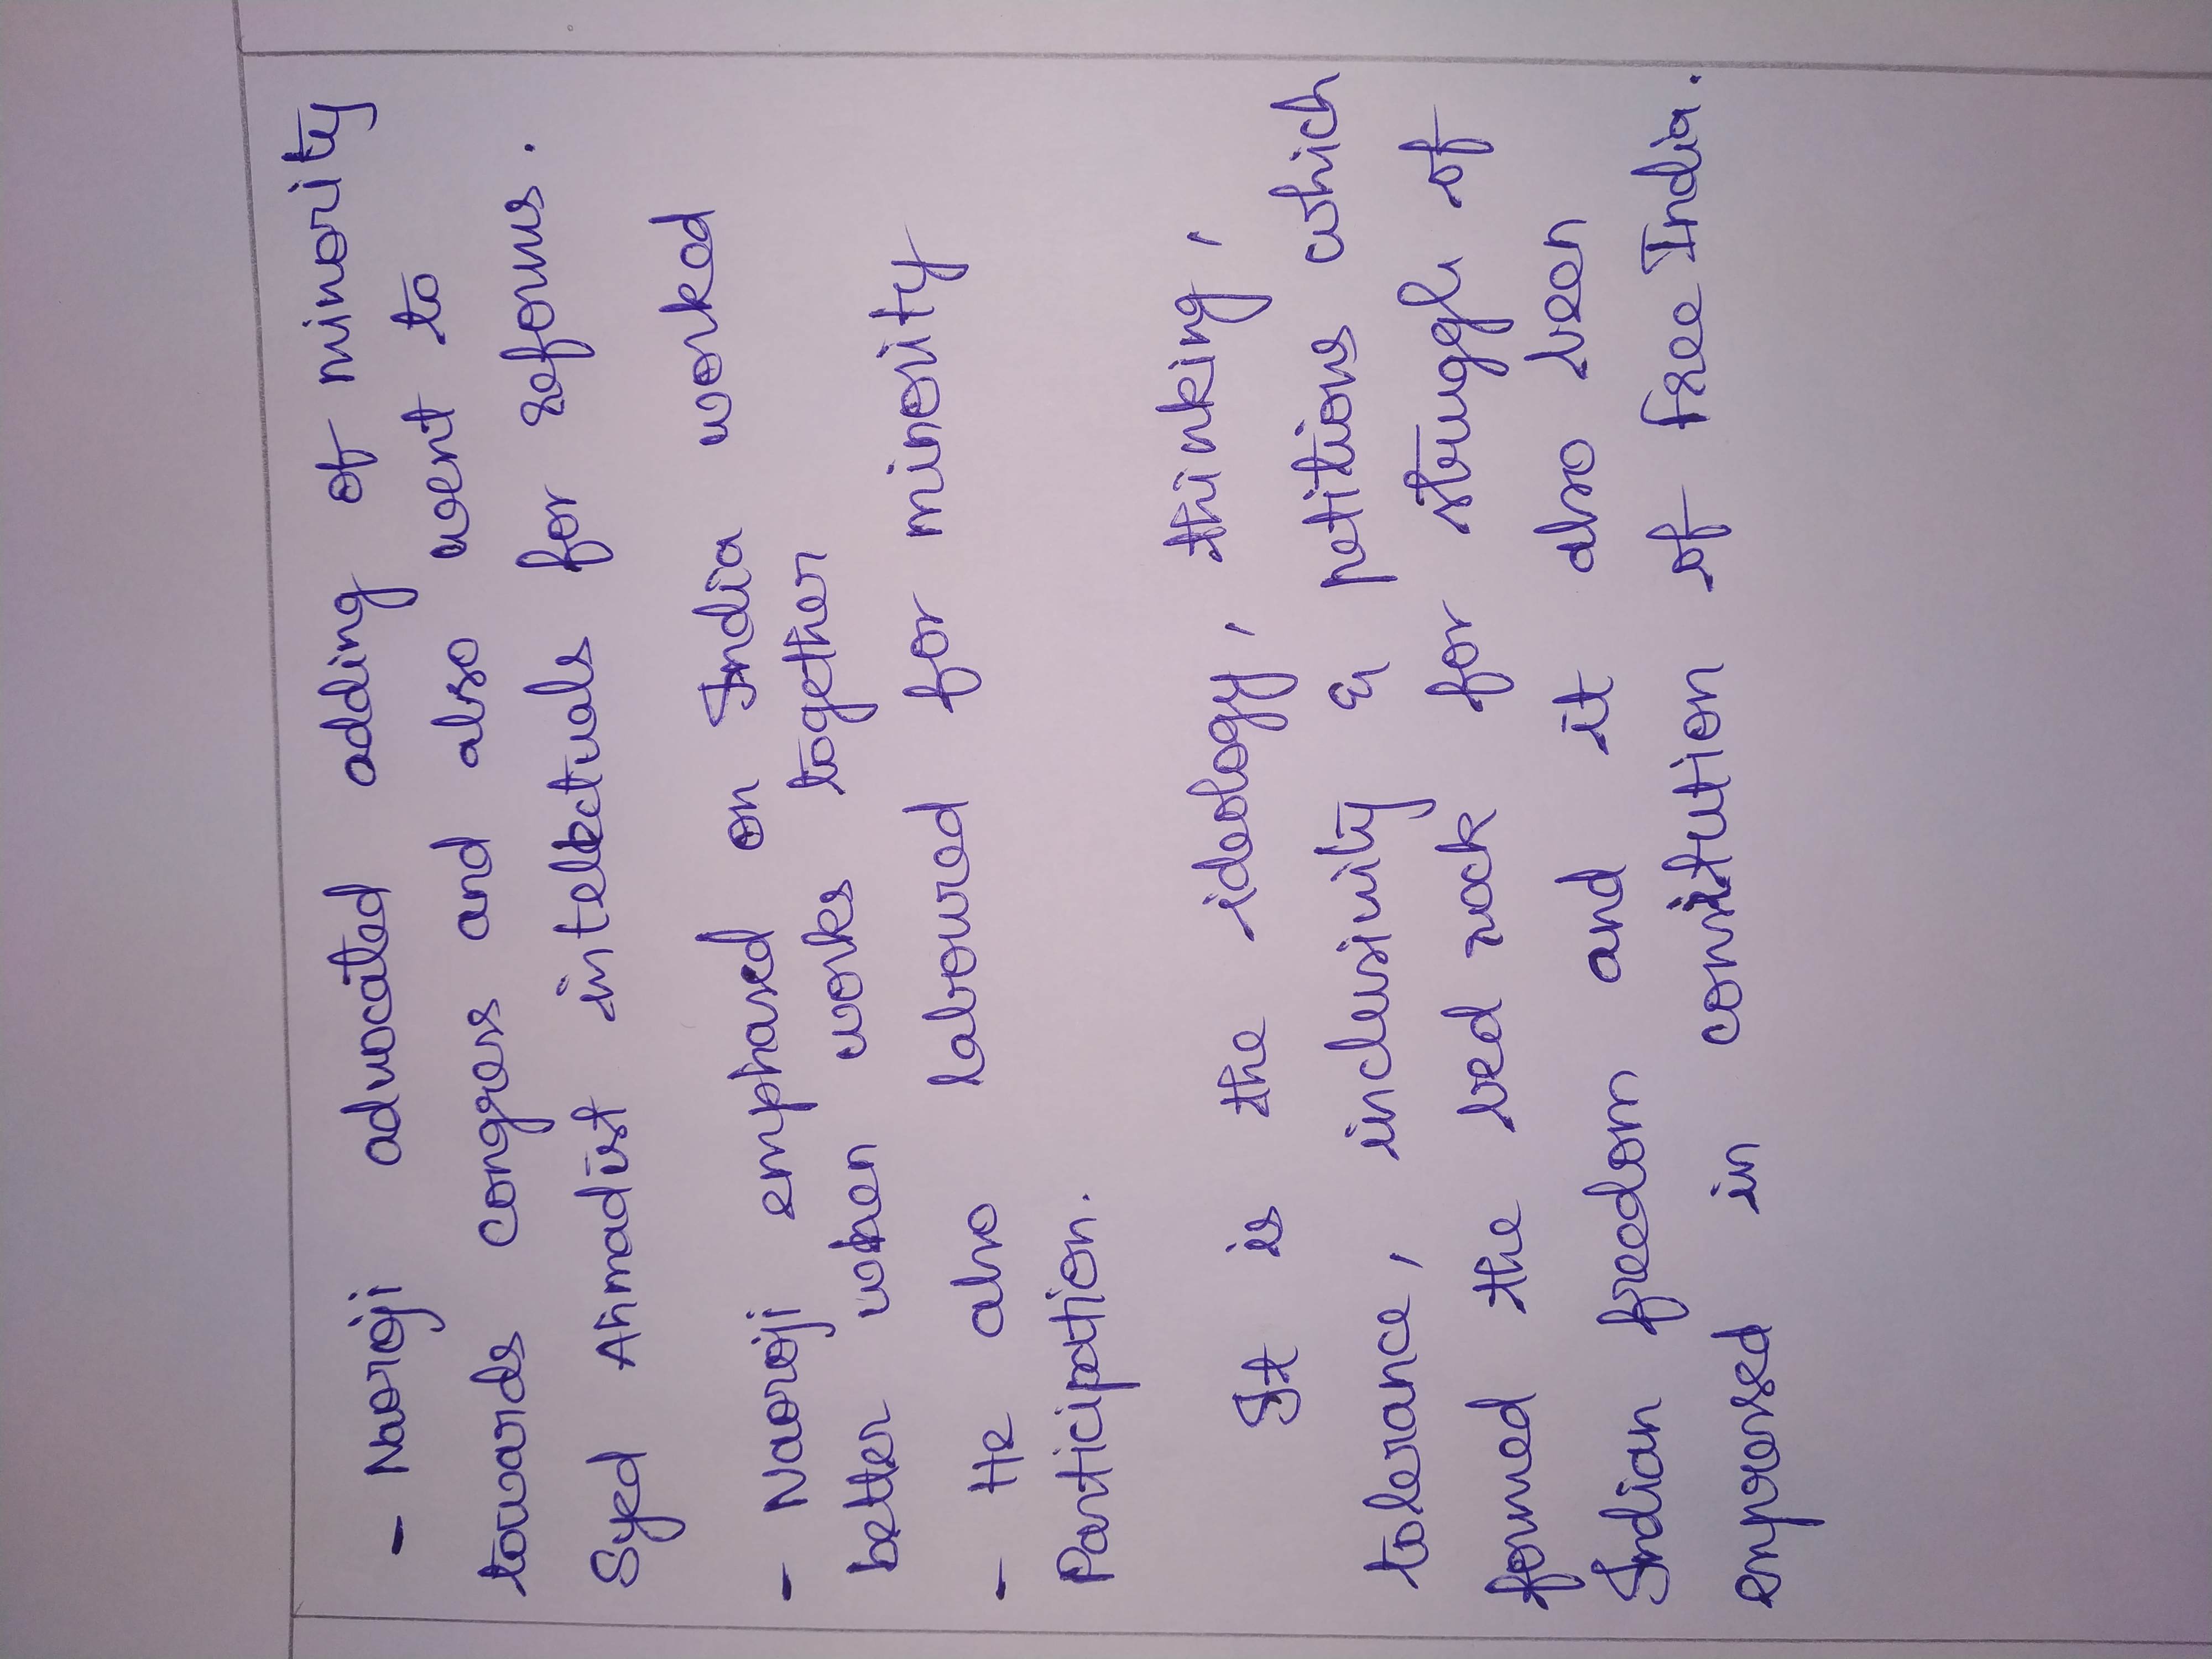 - Naoroji advocated adding of minority
towards congress and also went to
Syed Ahmadist intellectuals for reforms.
- Naoroji emphased on India worked
better when works together
- He also laboured for minority
Participation.
It is the ideology, thinking,
tolerance, inclusivity & petitions which
formed the bed rock for struggle of
Indian freedom and it also been
enpressed in constitution of free India.